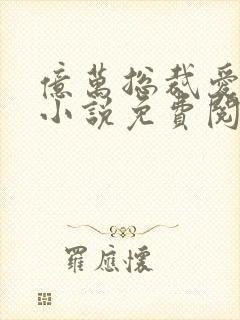 億萬總裁愛
小說免費閱
羅應懷